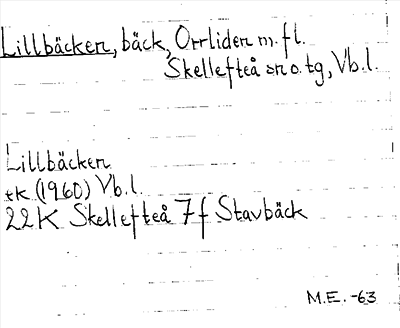 Lillbäcken, bäck, Orrliden m.fl.
Skellefteå sn o. tg, Vb.l.
Lillbäcken
ek (1960) Vb.l.
22K Skellefteå 7f Stavbäck
M.E. -63